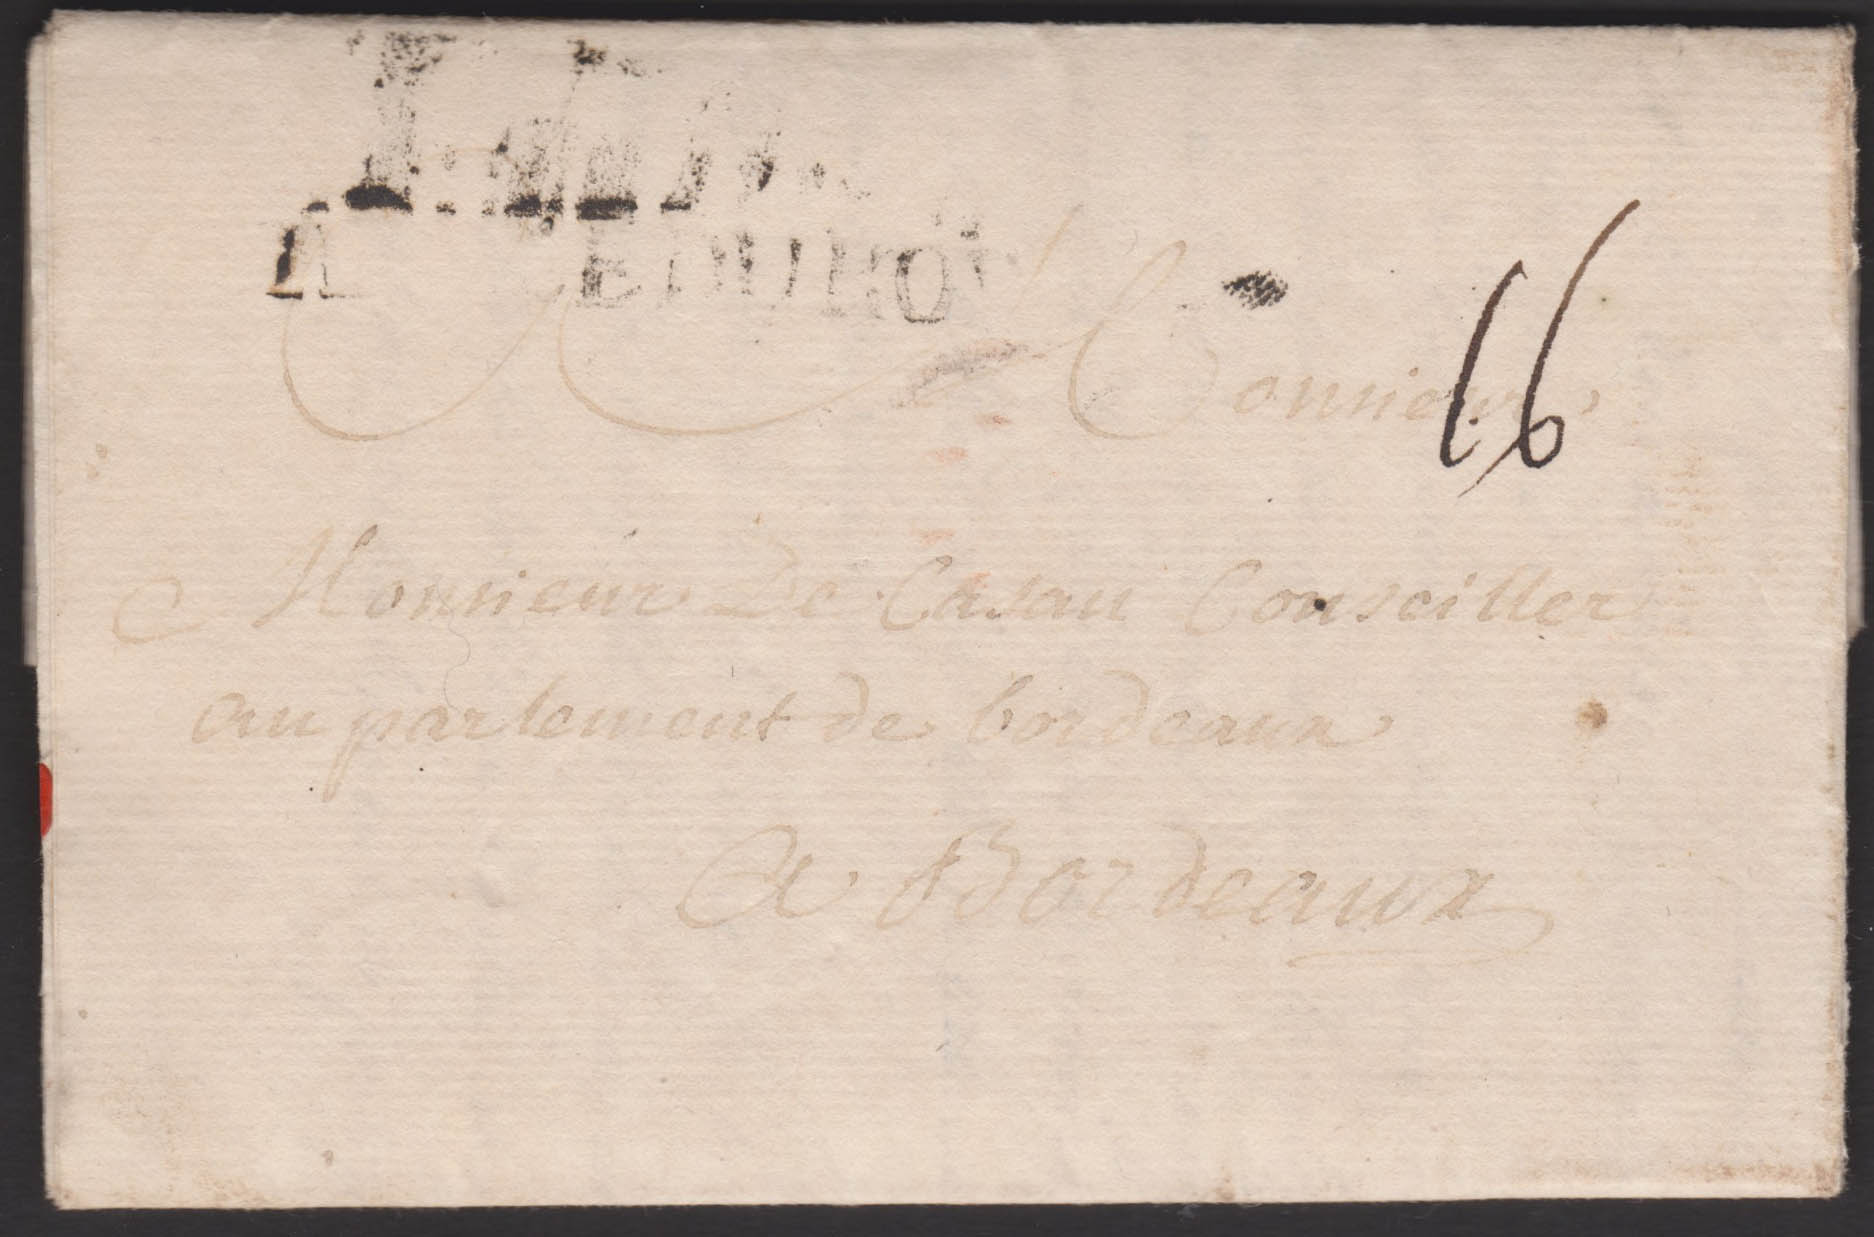 16
Monsieur
Monsieur De Casau Conseiller
au parlement de bordeaux
A Bordeaux